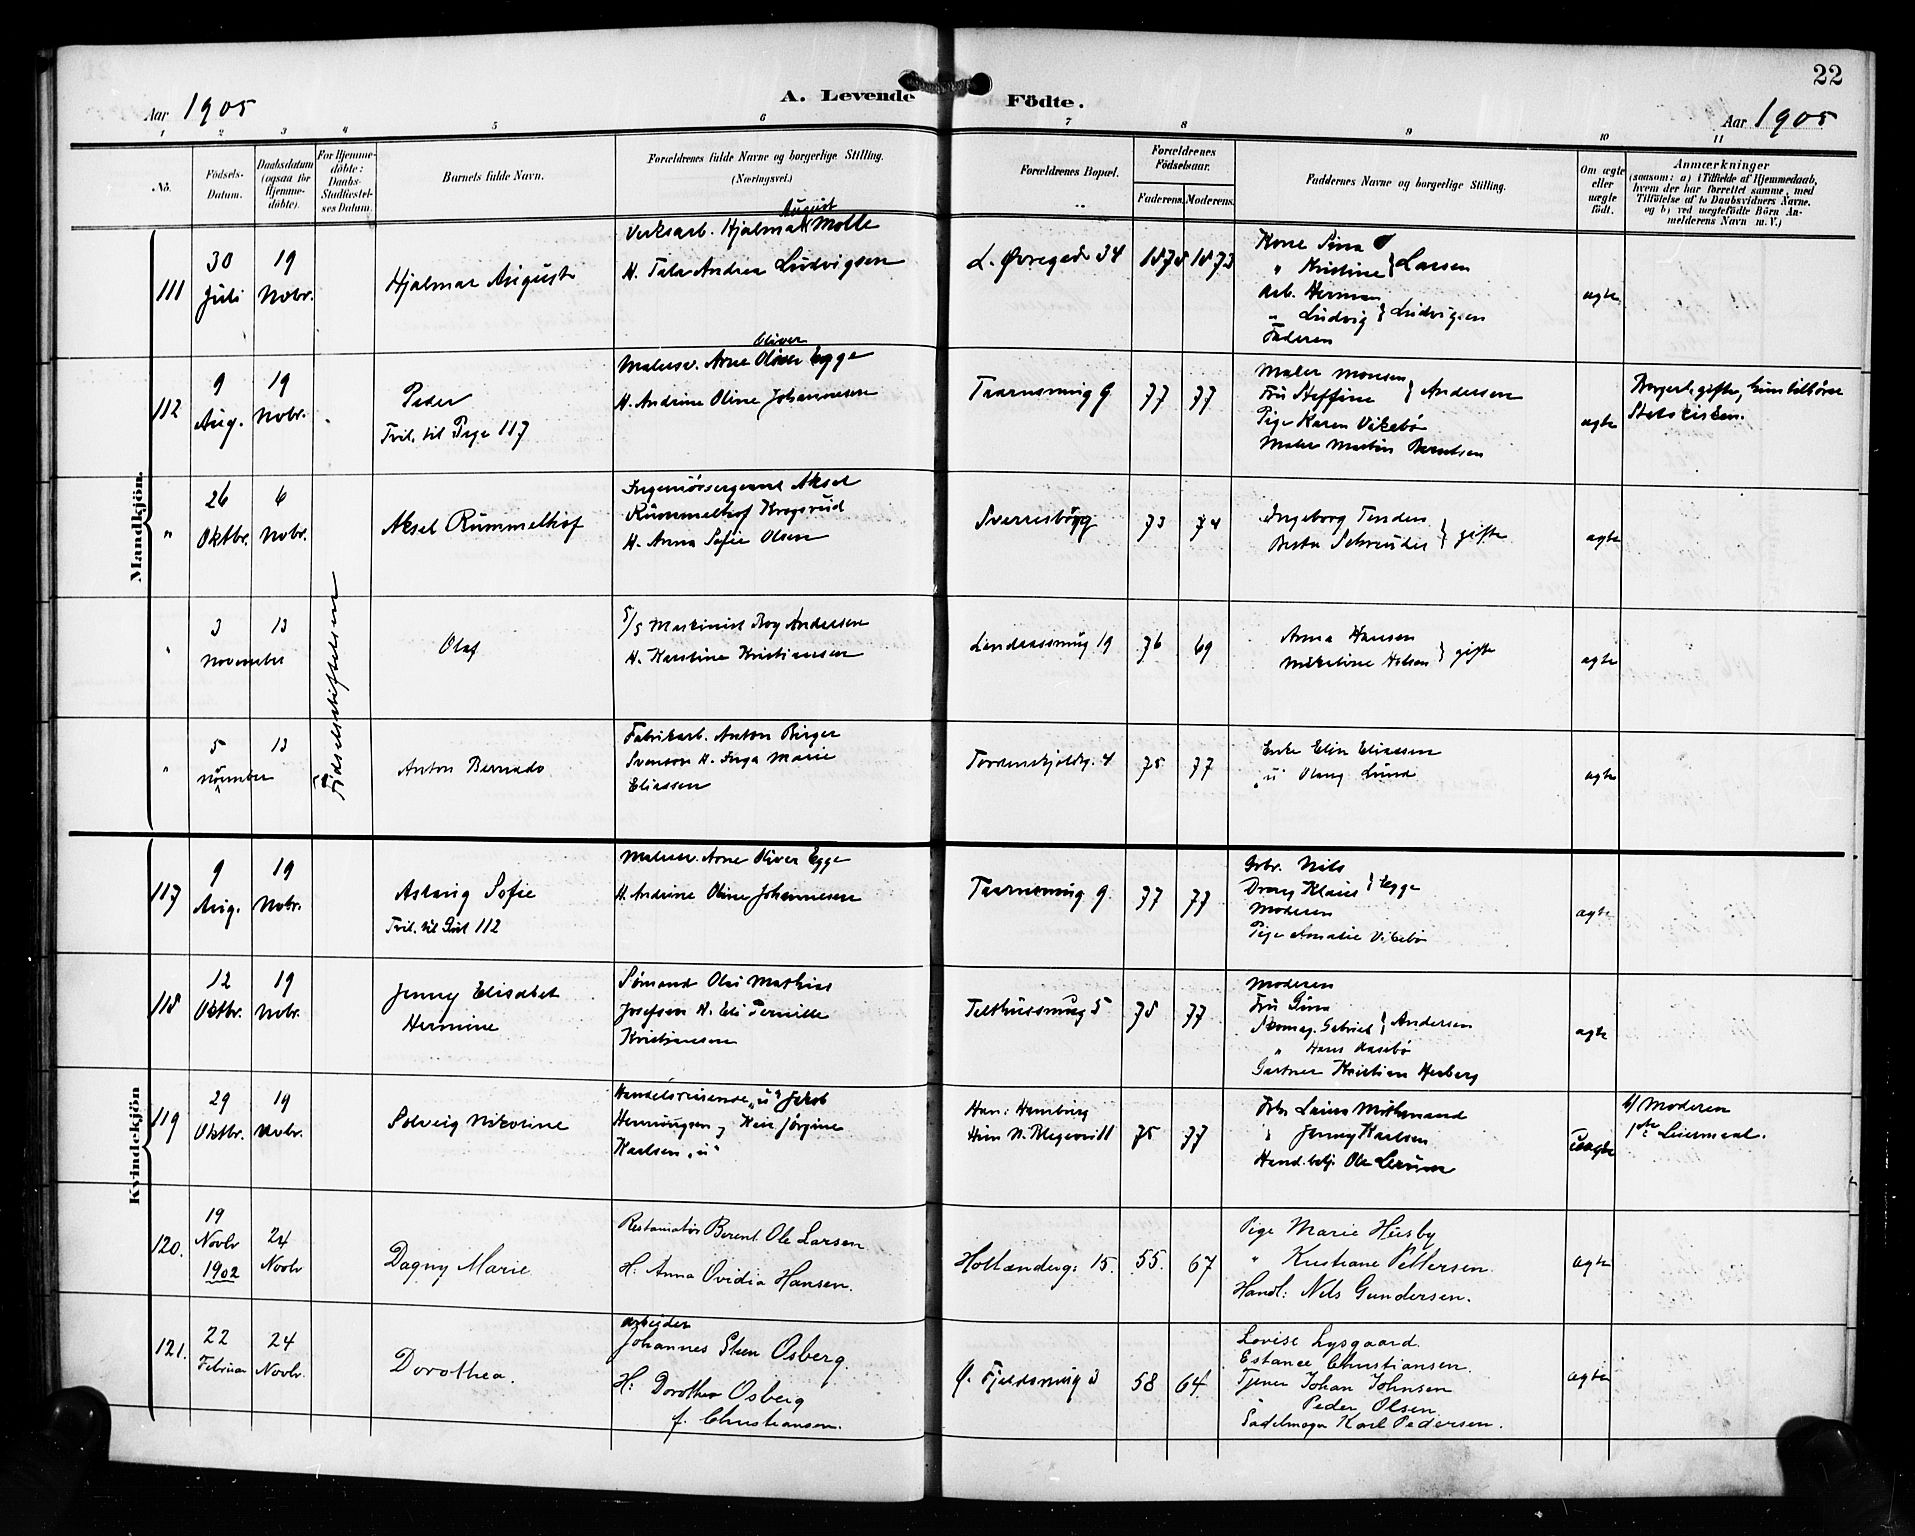 22
Aar 1905
A. Levende Födte.
Aar 1905
1 2 3 4 5 6 7 8 9 10 11
No.
Födsels-Datum.
Daabsdatum (ogsaa for Hjemmedöbte).
For Hjemmedöbte: Daabs-Stadfæstelses Datum.
Barnets fulde Navn.
Forældrenes fulde Navne og borgerlige Stilling. (Næringsvei.)
Forældrenes Bopæl.
Forældrenes Födselsaar.
Faderens. Moderens.
Faddernes Navne og borgerlige Stilling.
Om ægte eller uægte födt.
Anmærkninger
(saasom: a) i Tilfælde af Hjemmedaab, hvem der har forrettet samme, med Tilföielse af to Daabsvidners Navne, og b) ved uægtefödte Börn Anmelderens Navn m. V.)
Mandkjön.
111
30 Juli
19 Novbr.
Hjalmar August
Verksarb. Hjalmar August Molle
H. Tala Andrea Ludvigsen
L. Øvregade 34
1875 1873
Kone Sina
" Kristine } Larsen
Arb. Herman
" Ludvig } Ludvigsen
Faderen
ægte
112
9 Aug.
19 Novbr.
Peder
Tvil. til Pige 117
Malersv. Arne Oliver Egge
Oliver
H. Andrine Oline Johannesen
Taarnsmug 9
77 77
Maler Monsen
Fru Steffine } Andersen
Pige Karen Vikebø
Maler Martin Berntsen
ægte
Borgerl. gifte, hun tilhører
Statskirken.
"
26 Oktbr.
6 Novbr.
Aksel Rummelhof
Ingeniørsergeant Aksel
Rummelhof Krogsrud
H. Anna Sofie Olsen
Sverresborg
73 74
Ingeborg Tenden
Berta Schreuder } gifte
ægte
"
3 November
13
Fødselsstiftelsen
Olaf
5/5 Maskinist Roy Andersen
H. Karstine Kristiansen
Lindaasmug 19
76 69
Anna Hansen
Mikeline Holsen } gifte
ægte
"
5 November
13
Anton Bernado
Fabrikarb. Anton Birger
Svenson H. Inga Marie
Eliassen
Tordenskjoldg. 4
75 77
Enke Elin Eliassen
"u" Olang Lund
ægte
Kvindekjön
117
9 Aug.
19 Novbr.
Aslaug Sofie
Tvil. til Gut 112
Malersv. Arne Oliver Egge
H. Andrine Oline Johannesen
Taarnsmug 9.
77 77
Gbr. Nils
Dreng Klaus } Egge
Moderen
Pige Amalie Vikebø
ægte
118
12 Oktbr.
19 Novbr.
Jenny Elisabet
Hermine
Sømand Olai Mathias
Josefsen H. Eli Pernille
Kristiansen
Telthussmug 5
75 77
Moderen
Fru Gina
Skomag. Gabriel } Andersen
" Hans Aasebø
Gartner Kristian Herberg
ægte
119
29 Oktbr.
19 Novbr.
Solveig Nikoline
Handelsreisende "u" Jakob
Henningsen og Hein Jørgine
Karlsen "u"
Han: Hamburg
Hun N. Blegevei 11
75 77
Frk. Laura Mothmand
" Jenny Karlsen
Hand.betj. Ole Lerum
uægte
b/ Moderen
1ste Leiermaal.
120.
19 Novbr 1902
24 Novbr
Dagny Marie
Restauratør Berent Ole Larsen
H. Anna Ovidia Hansen.
Hollænderg: 15.
55. 67
Pige Marie Husby
" Kristiane Pettersen.
Handl: Nils Gundersen.
ægte
121.
22 Februar
24 Novbr.
Dorothea.
Arbejder
Johannes Steen Osberg.
H: Dorothea Osberg
f. Christiansen.
Ø. Fjeldsmug 3
58 64.
Lovise Lysgaard.
Estance Christiansen.
Tjener Johan Johnsen
Peder Olsen
Sadelmager Karl Pedersen.
ægte